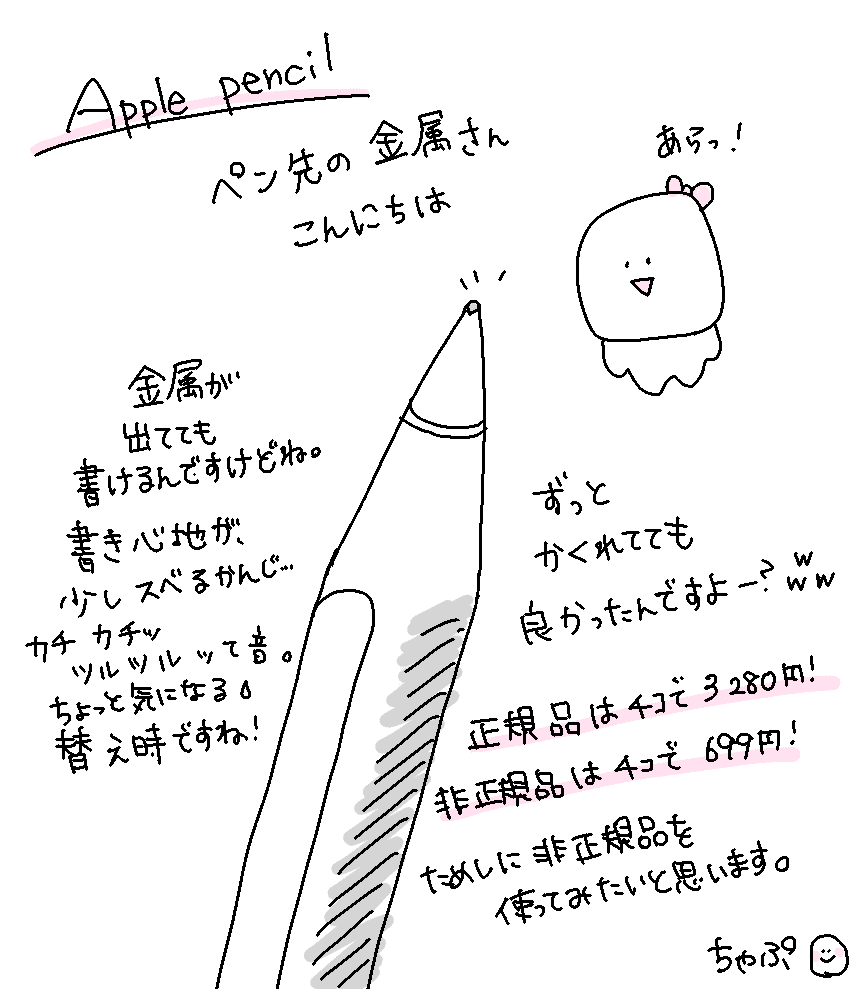 Apple pencil
ペン先の金属さん
こんにちは
あらっ!
金属が
出てても
書けるんですけどね。
書き心地が、
少しスベるかんじ…
カチカチッ
ツルツルッて音。
ちょっと気になる。
替え時ですね!
ずっと
かくれてても
良かったんですよー?www
正規品は4コで3280円!
非正規品は4コで699円!
ためしに非正規品を
使ってみたいと思います。
ちゃぷ